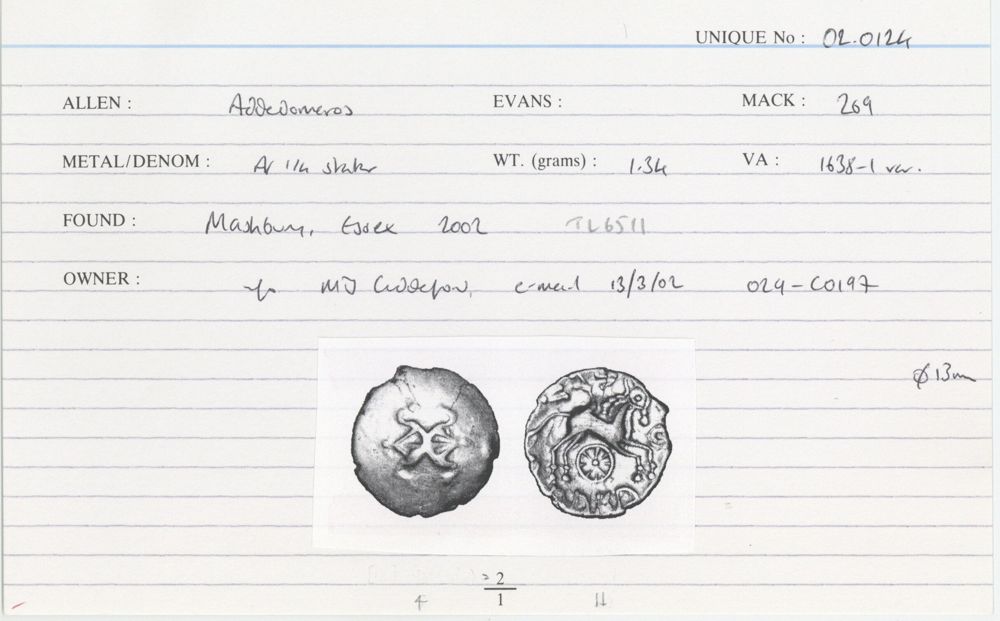 UNIQUE No : 02.0124
ALLEN : Addedomaros EVANS : MACK : 269
METAL/DENOM : AV 1/4 stater WT. (grams) : 1.34 VA : 1638-1 var.
FOUND : Mashbury, Essex 2002 TL6511
OWNER : MJ e-mail 13/3/02 024-C0197
ø 13mm
2
1